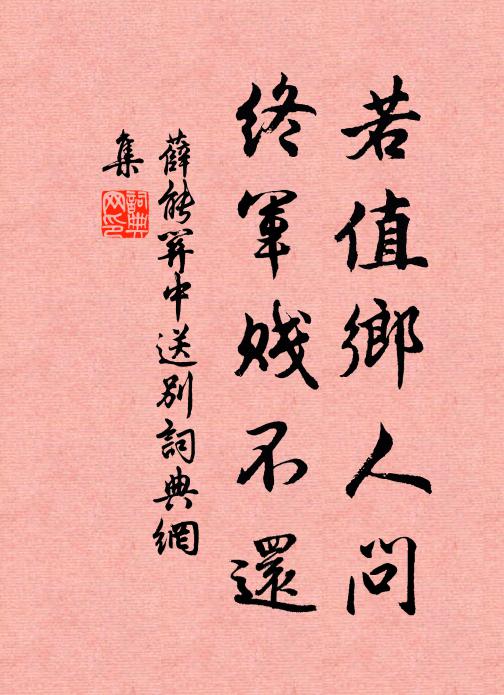 若值鄉人問
終軍賤不還
薛能關中送別詞典網
集
詞典
网印